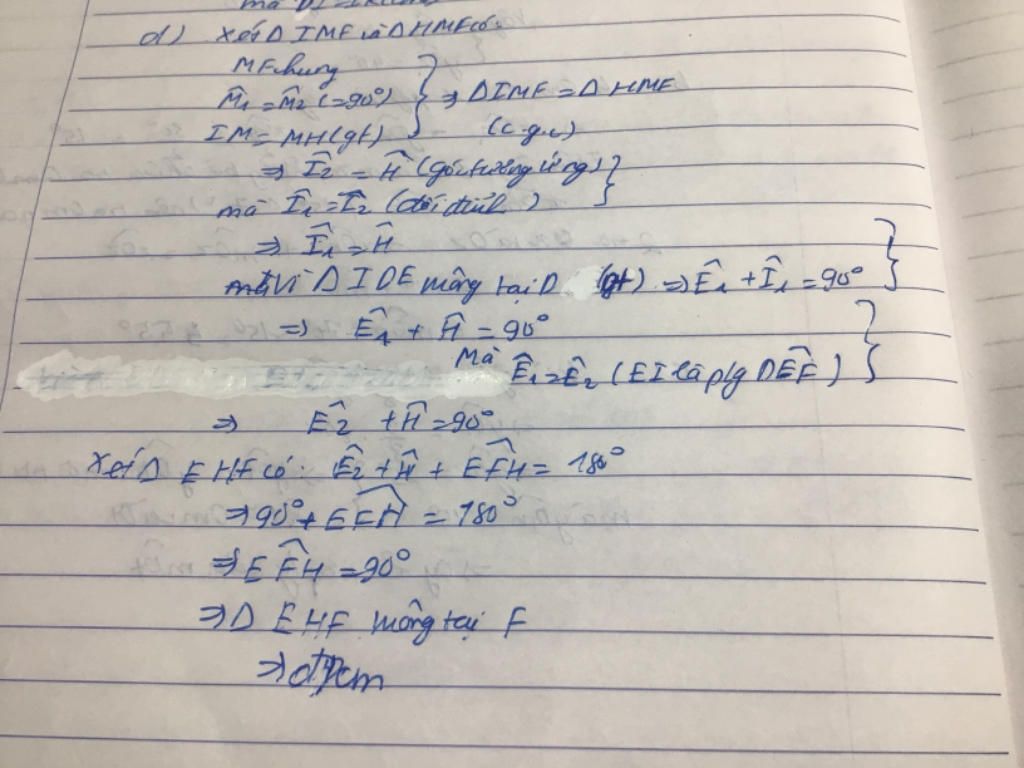 mà DI = IK (cmt)
d) Xét Δ IMF và Δ HMF có:
MF chung
M̂₁ = M̂₂ (=90°) ⇒ Δ IMF = Δ HMF
IM = MH (gt) (c-g-c)
⇒ Î₂ = Ĥ (góc tương ứng)
mà Î₁ = Î₂ (đối đỉnh)
⇒ Î₁ = Ĥ
Vì Δ IDE vuông tại D (gt) ⇒ Ê₁ + Î₁ = 90°
⇒ Ê₁ + Ĥ = 90°
Mà Ê₁ = Ê₂ (EI là p/g DÊF)
⇒ Ê₂ + Ĥ = 90°
Xét Δ EHF có: Ê₂ + Ĥ + EF̂H = 180°
⇒ 90° + EF̂H = 180°
⇒ EF̂H = 90°
⇒ Δ EHF vuông tại F
⇒ đpcm